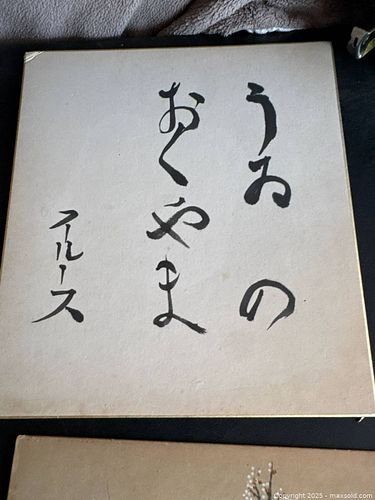 うゐ の
おくやま
フルース
Copyright 2025 - maxsold.com